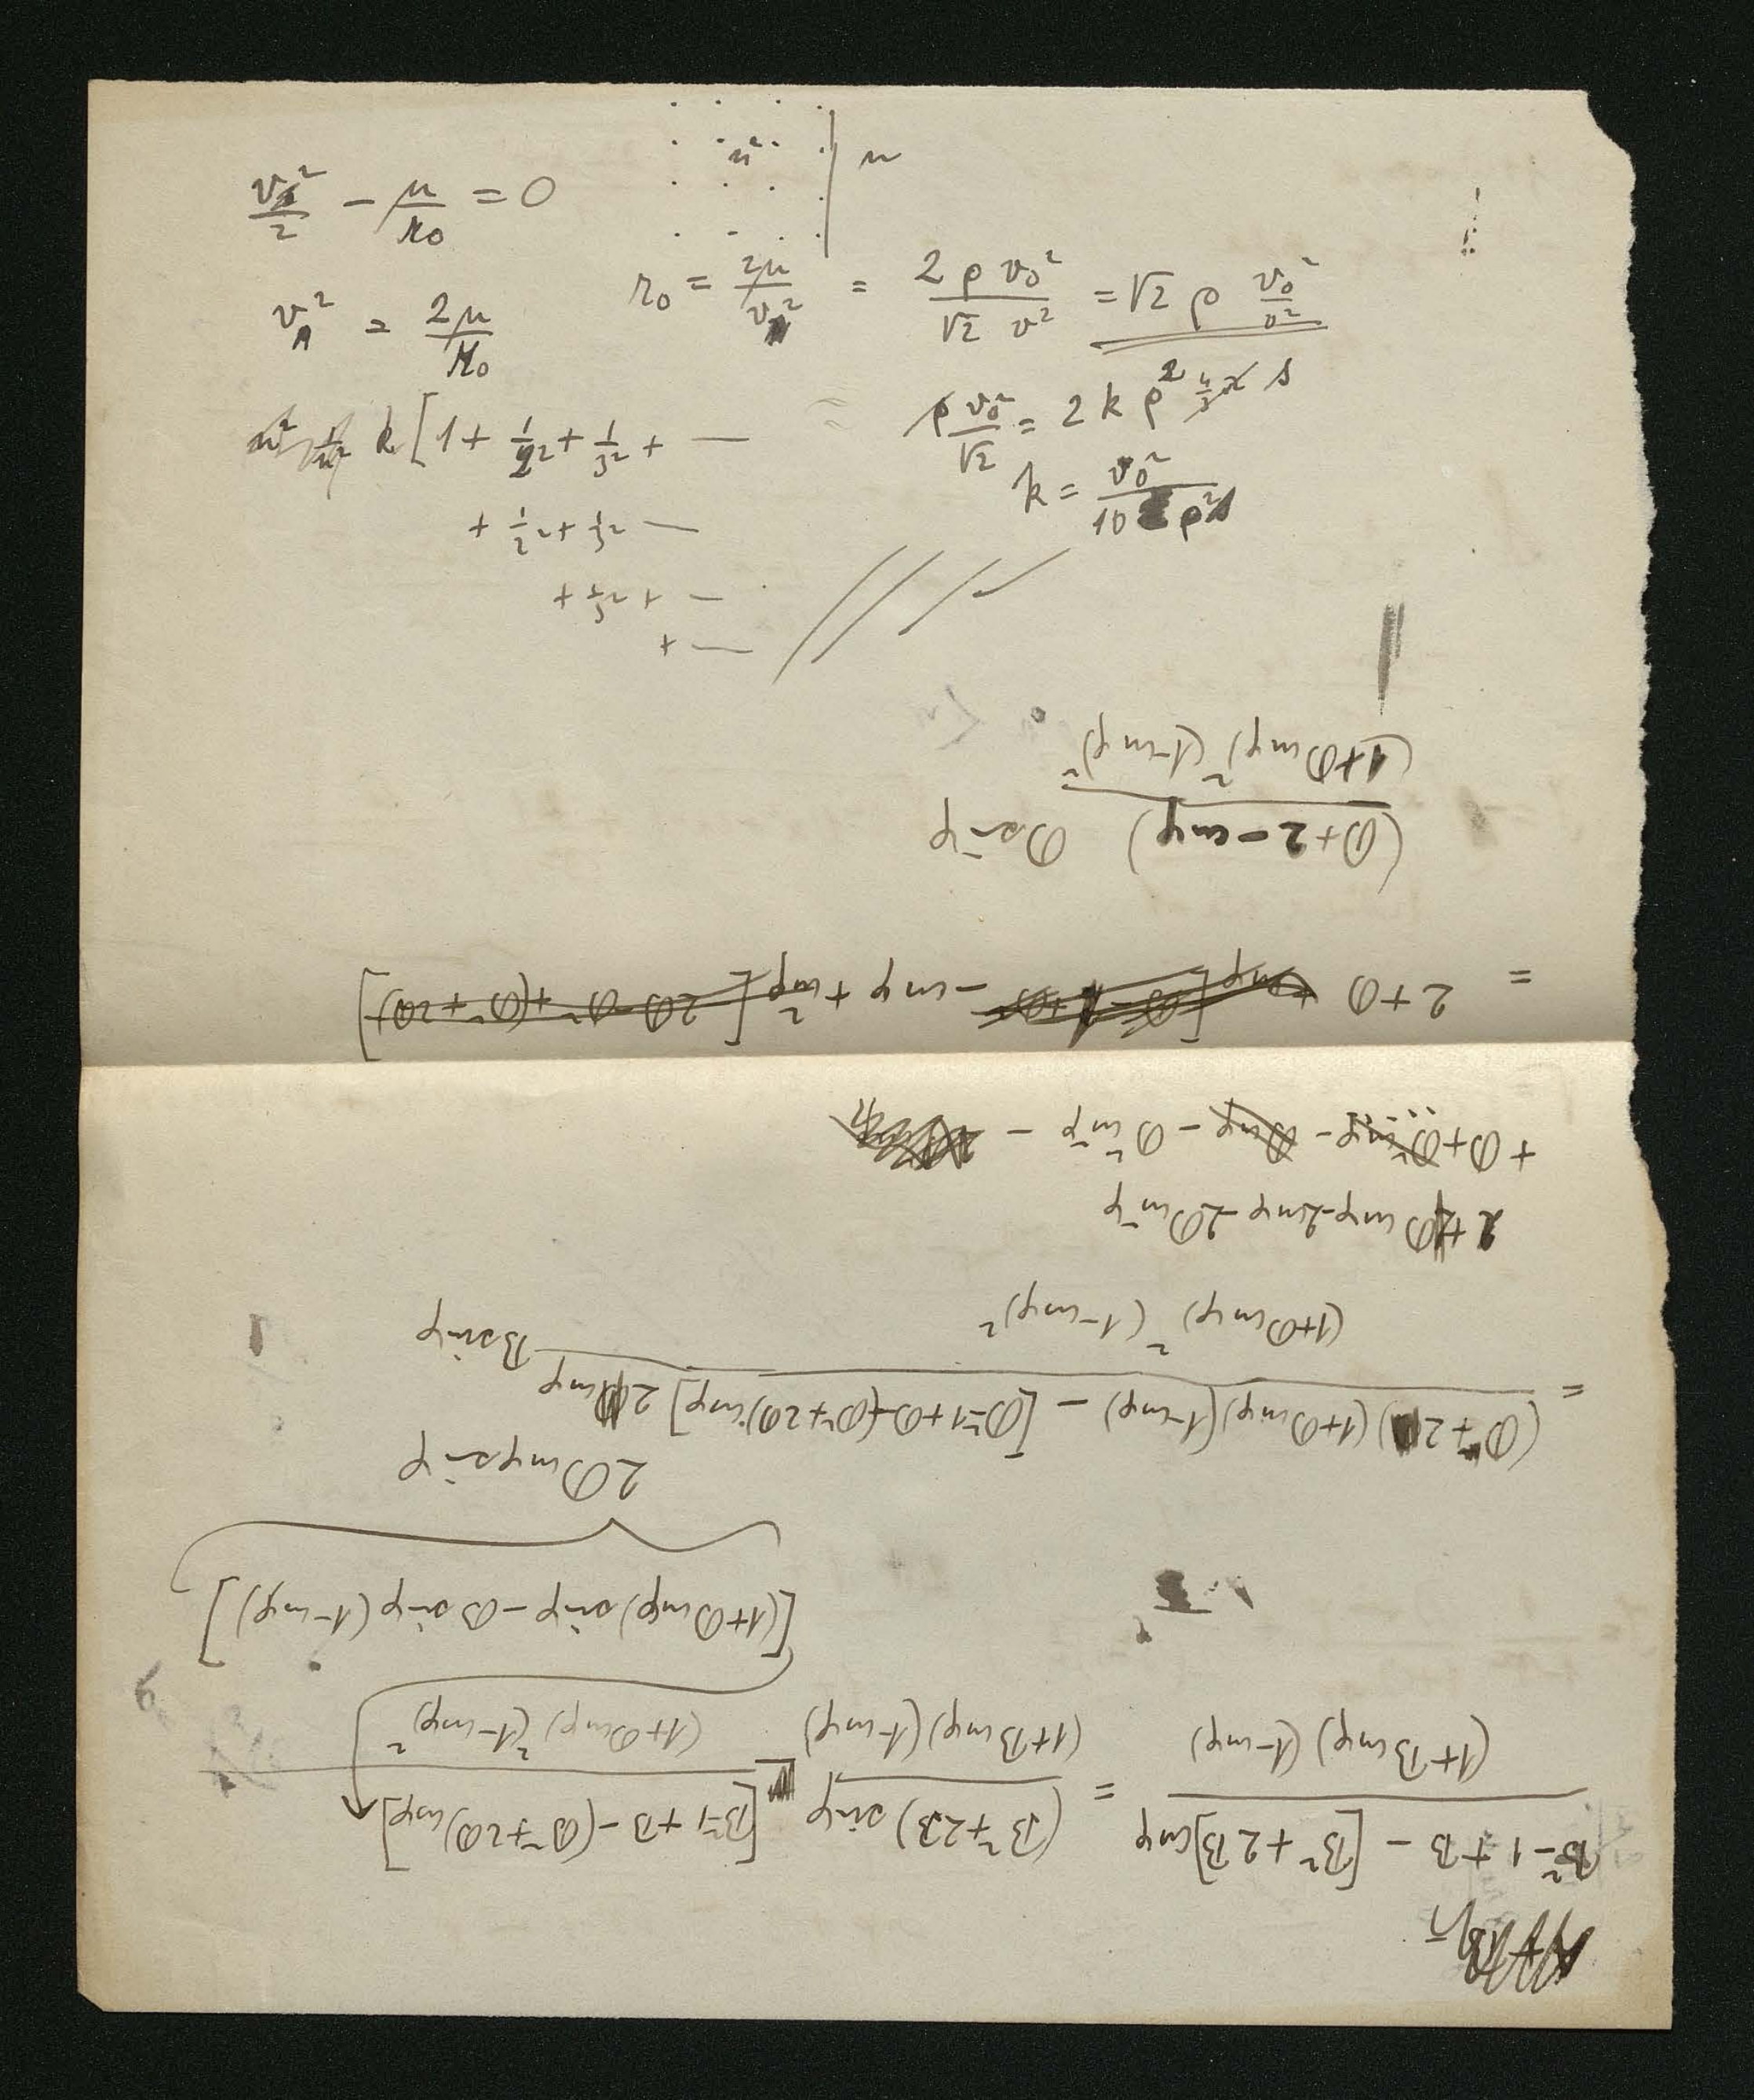 n² | n
v²/2 − μ/r₀ = 0
r₀ = 2μ/v² = 2 ρ v₀²/(√2 v²) = √2 ρ v₀²/v²
v² = 2μ/r₀
ρ v₀²/√2 = 2 k ρ² s
k [1 + 1/2² + 1/3² + —
k = v₀²/(10 ρ² s)
+ 1/2² + 1/3² —
+ 1/3² + —
+ —
B² − 1 + B − [B² + 2B] cos φ / (1 + B cos φ) (1 − cos φ) = (B² + 2B) sin φ / (1 + B cos φ) (1 − cos φ) − [B² − 1 + B − (B² + 2B) cos φ] / (1 + B cos φ)² (1 − cos φ)²
[(1 + B cos φ) sin φ − B sin φ (1 − cos φ)]
2B cos φ sin φ
= (B² + 2B) (1 + B cos φ) (1 − cos φ) − [B² − 1 + B − (B² + 2B) cos φ] 2 cos φ / (1 + B cos φ)² (1 − cos φ)² B sin φ
2 + 2B cos φ − 2 cos φ − 2B cos² φ
+ B + B² cos φ − B cos φ − B² cos² φ −
= 2 + B − cos φ + cos² φ [2B − B² + (B² + 2B)]
(B + 2 − cos φ) / (1 + B cos φ)² (1 − cos φ)² B sin φ